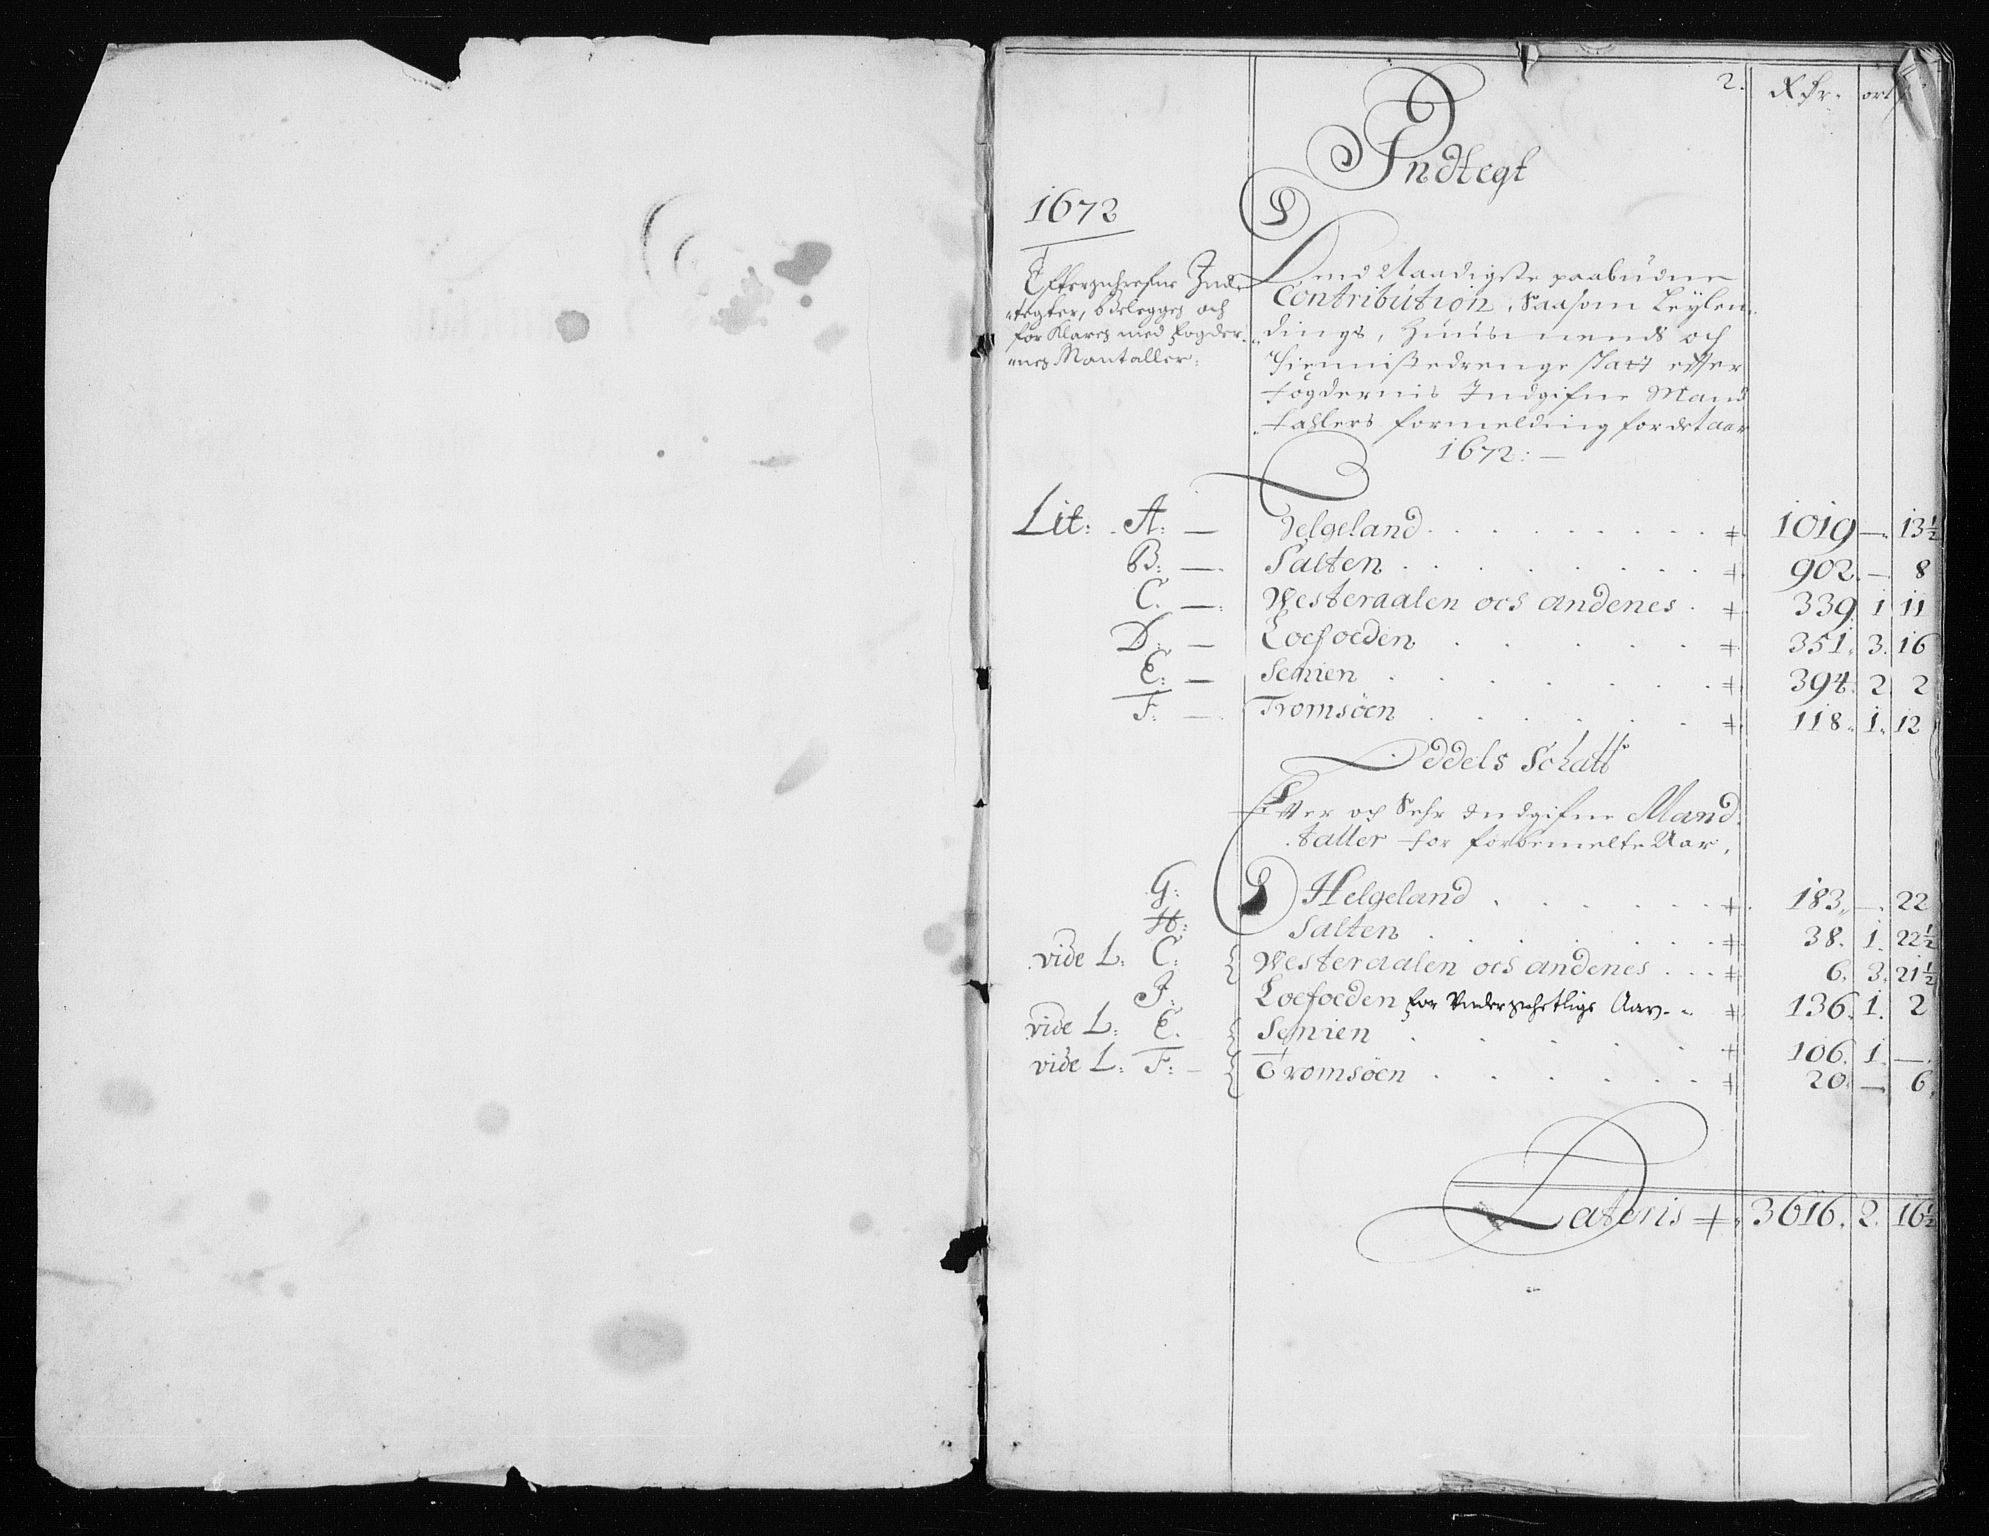 2. Rdr. ort ß
Indtegt
1672
Efterschrefne Ind-
tegter, bdelegges och
for Klares med fogder-
nes Mantaller:
Dend Naadigste paabudne
Contribution, Saasom Leylen-
dings, Huusmends och
Tiennistedrenge skatt efter
fogdernis Indgifne Mand
tahlers formelding for det aar
1672:—
Lit: A: — Helgeland + 1019 — 13½
B: — Salten + 902 — 8
C. — Westeraalen och andenes + 339 1 11
D: — Loefoeden + 351. 3. 16
E: — Senien + 394. 2 2
F: — Tromsöen + 118. 1. 12
Oddels Schatt
Efter och Sehr Indgifne Mand
taller for forbemelte Aar,
G: Helgeland + 183. — 22
H: Salten + 38. 1. 22½
vide L: C: Westeraalen och andenes + 6. 3. 21½
J: Loefoeden for Underschetlige Aar + 136. 1. 2
vide L: E. Senien + 106. 1. —
vide L: F: — Tromsöen + 20. — 6
Lateris + 3616. 2. 16½